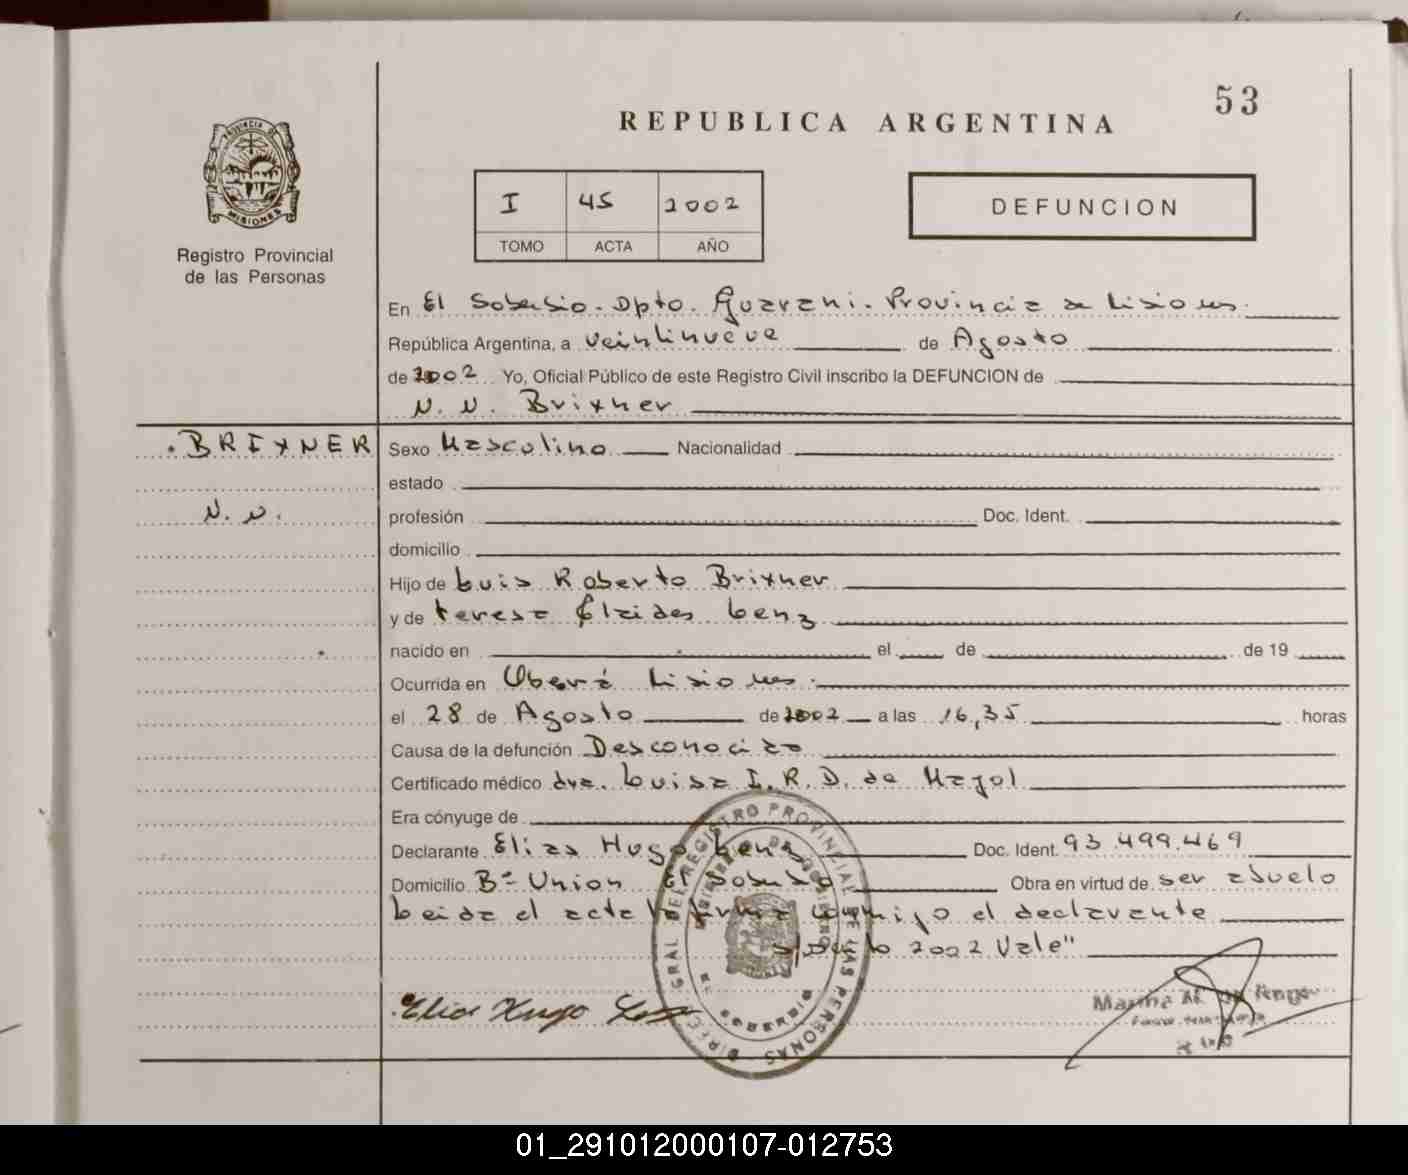 53
REPUBLICA ARGENTINA
PROVINCIA DE
MISIONES
Registro Provincial
de las Personas
I 45 2002
TOMO ACTA AÑO
DEFUNCION
En El Soberbio. Dpto. Guarani. Provincia de Misiones.
República Argentina, a veintinueve de Agosto
de 2002 Yo, Oficial Público de este Registro Civil inscribo la DEFUNCION de
N. N. Brixner
BRIXNER
N. N.
Sexo Masculino Nacionalidad
estado
profesión Doc. Ident.
domicilio
Hijo de Luis Roberto Brixner
y de teresa Elaides Lenz
nacido en el de de 19
Ocurrida en Oberá Misiones.
el 28 de Agosto de 2002 a las 16,35 horas
Causa de la defunción Desconocida
Certificado médico dra. Luisa I. R. D. de Mazol
Era cónyuge de
Declarante Elias Hugo Lenz Doc. Ident. 93.499.469
Domicilio Bº Union El Soberbio Obra en virtud de ser abuelo
Leida el acta la firma conmigo el declarante
2002 Vale"
Elias Hugo Lenz
DIREC. GRAL. DEL REGISTRO PROVINCIAL DE LAS PERSONAS
MINISTERIO DE GOBIERNO
EL SOBERBIO
01_291012000107-012753